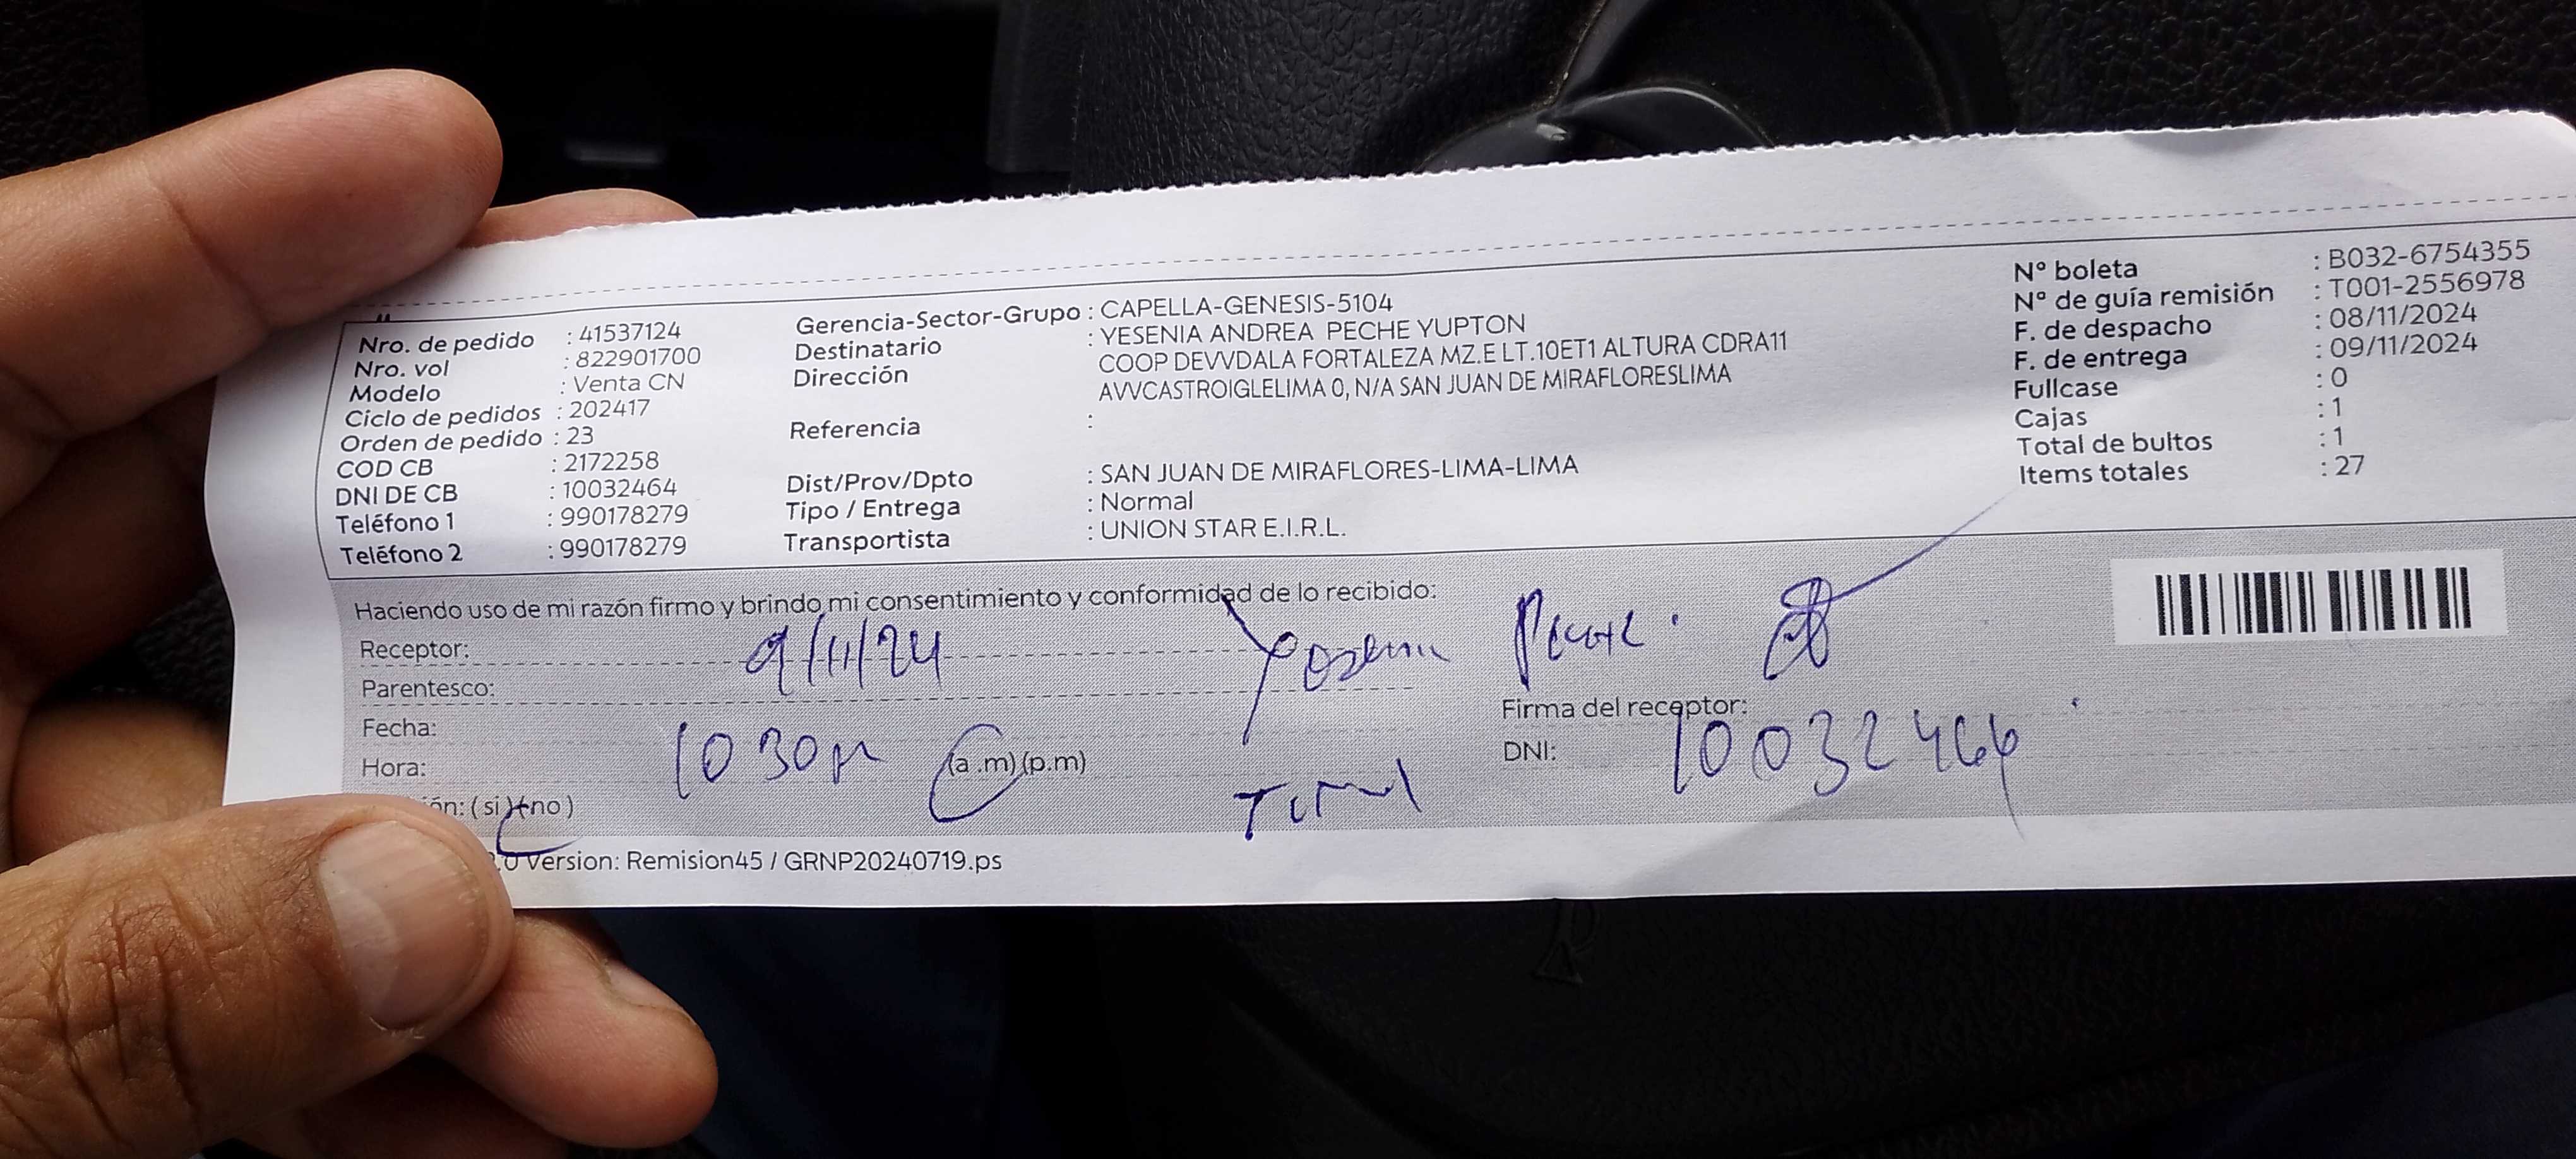 Nro. de pedido : 41537124
Nro. vol : 822901700
Modelo : Venta CN
Ciclo de pedidos : 202417
Orden de pedido : 23
COD CB : 2172258
DNI DE CB : 10032464
Teléfono 1 : 990178279
Teléfono 2 : 990178279
Gerencia-Sector-Grupo : CAPELLA-GENESIS-5104
Destinatario : YESENIA ANDREA PECHE YUPTON
Dirección COOP DEVVDALA FORTALEZA MZ.E LT.10ET1 ALTURA CDRA11
AVVCASTROIGLELIMA 0, N/A SAN JUAN DE MIRAFLORESLIMA
Referencia :
Dist/Prov/Dpto : SAN JUAN DE MIRAFLORES-LIMA-LIMA
Tipo / Entrega : Normal
Transportista : UNION STAR E.I.R.L.
Nº boleta : B032-6754355
Nº de guía remisión : T001-2556978
F. de despacho : 08/11/2024
F. de entrega : 09/11/2024
Fullcase : 0
Cajas : 1
Total de bultos : 1
Items totales : 27
Haciendo uso de mi razón firmo y brindo mi consentimiento y conformidad de lo recibido:
Receptor: 9/11/24
Parentesco:
Fecha:
Hora: 10 30 (a.m)(p.m)
ón: (si)(no)
Firma del receptor:
DNI: 10032464
Version: Remision45 / GRNP20240719.ps